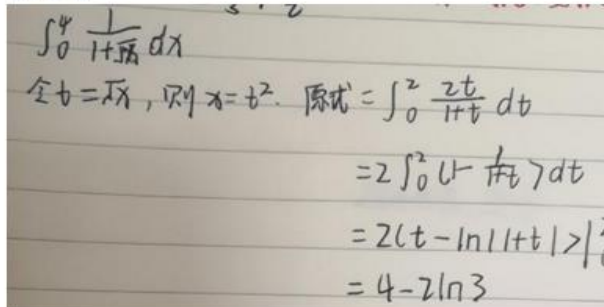 ∫₀⁴ 1/(1+√x) dx
令t=√x, 则x=t². 原式=∫₀² 2t/(1+t) dt
=2∫₀²(1-1/(1+t))dt
=2(t-ln|1+t|)|₀²
=4-2ln3